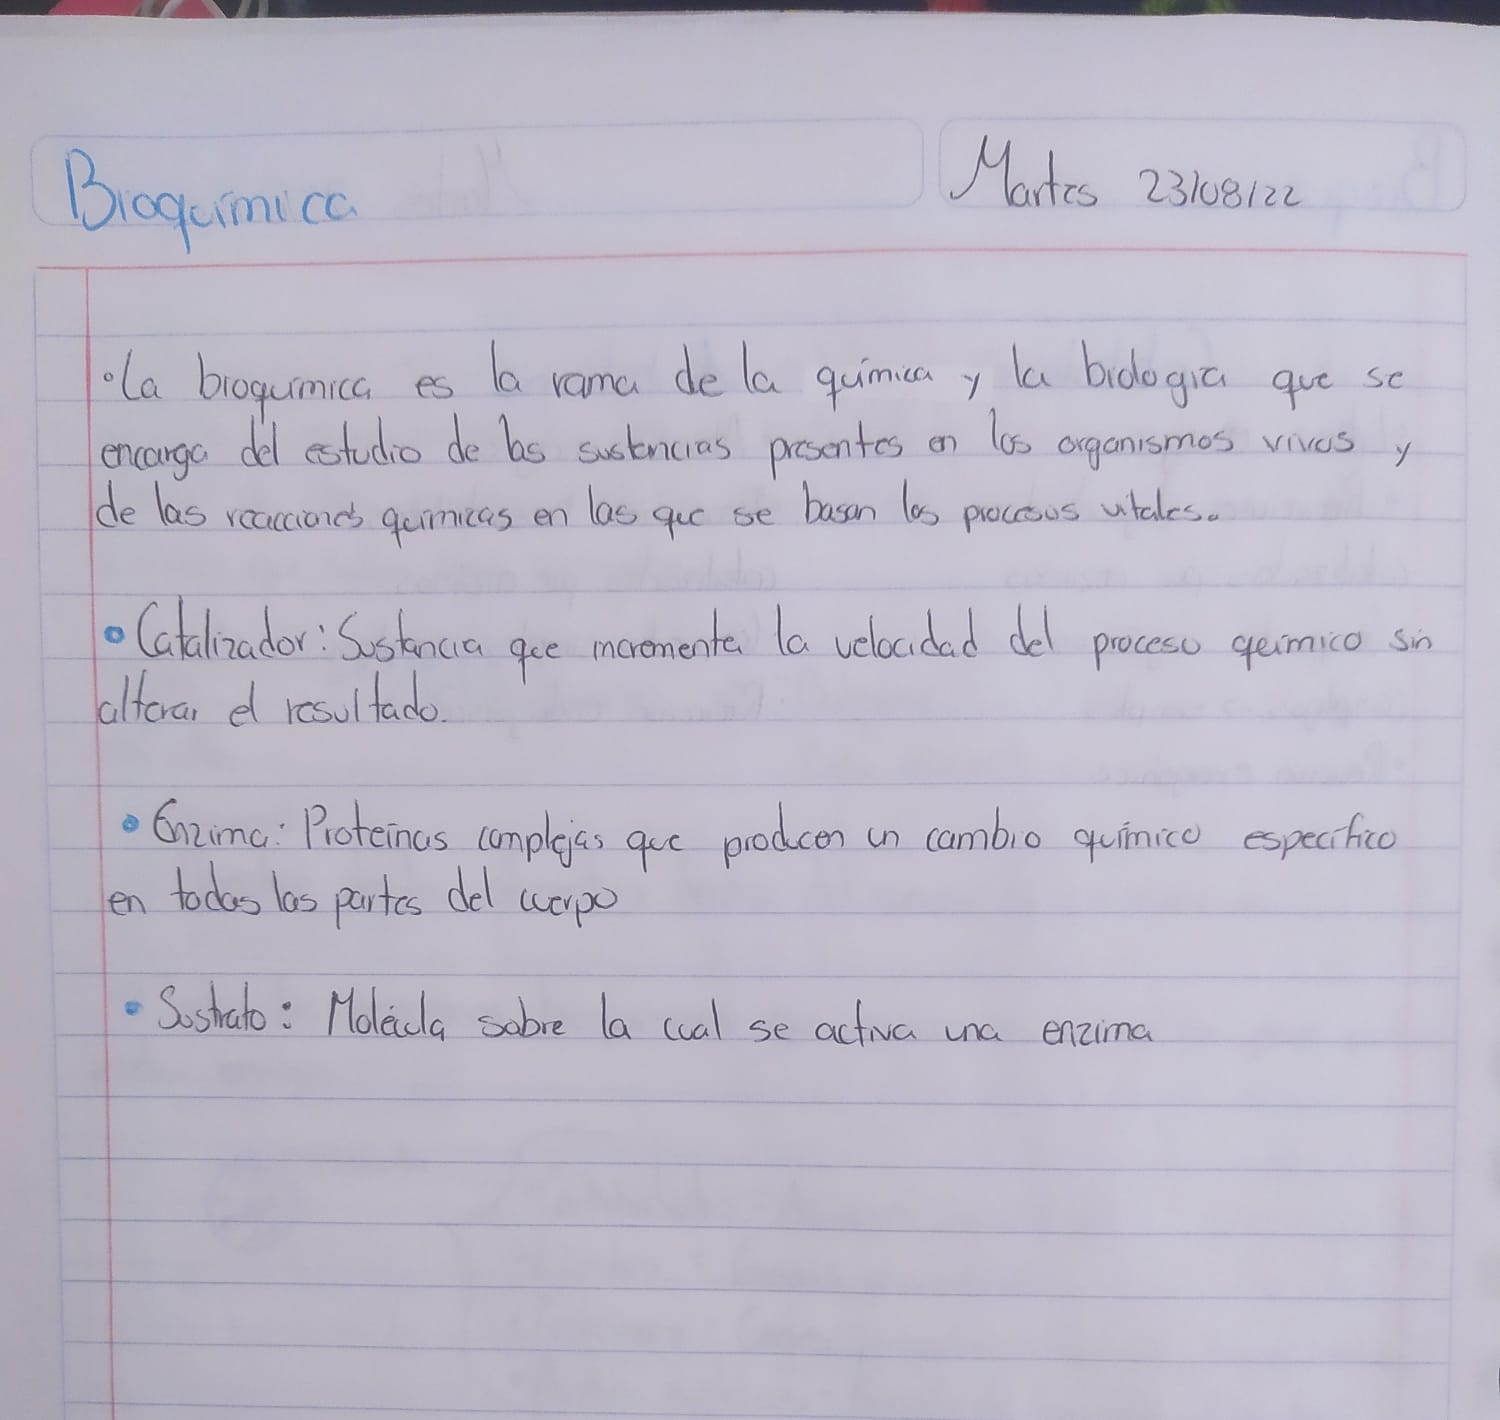 Bioquímica
Martes 23/08/22
• La bioquímica es la rama de la química y la biología que se
encarga del estudio de las sustancias presentes en los organismos vivos y
de las reacciones químicas en las que se basan los procesos vitales.
• Catalizador: Sustancia que incrementa la velocidad del proceso químico sin
alterar el resultado.
• Enzima: Proteínas complejas que producen un cambio químico específico
en todas las partes del cuerpo
• Sustrato: Molécula sobre la cual se activa una enzima